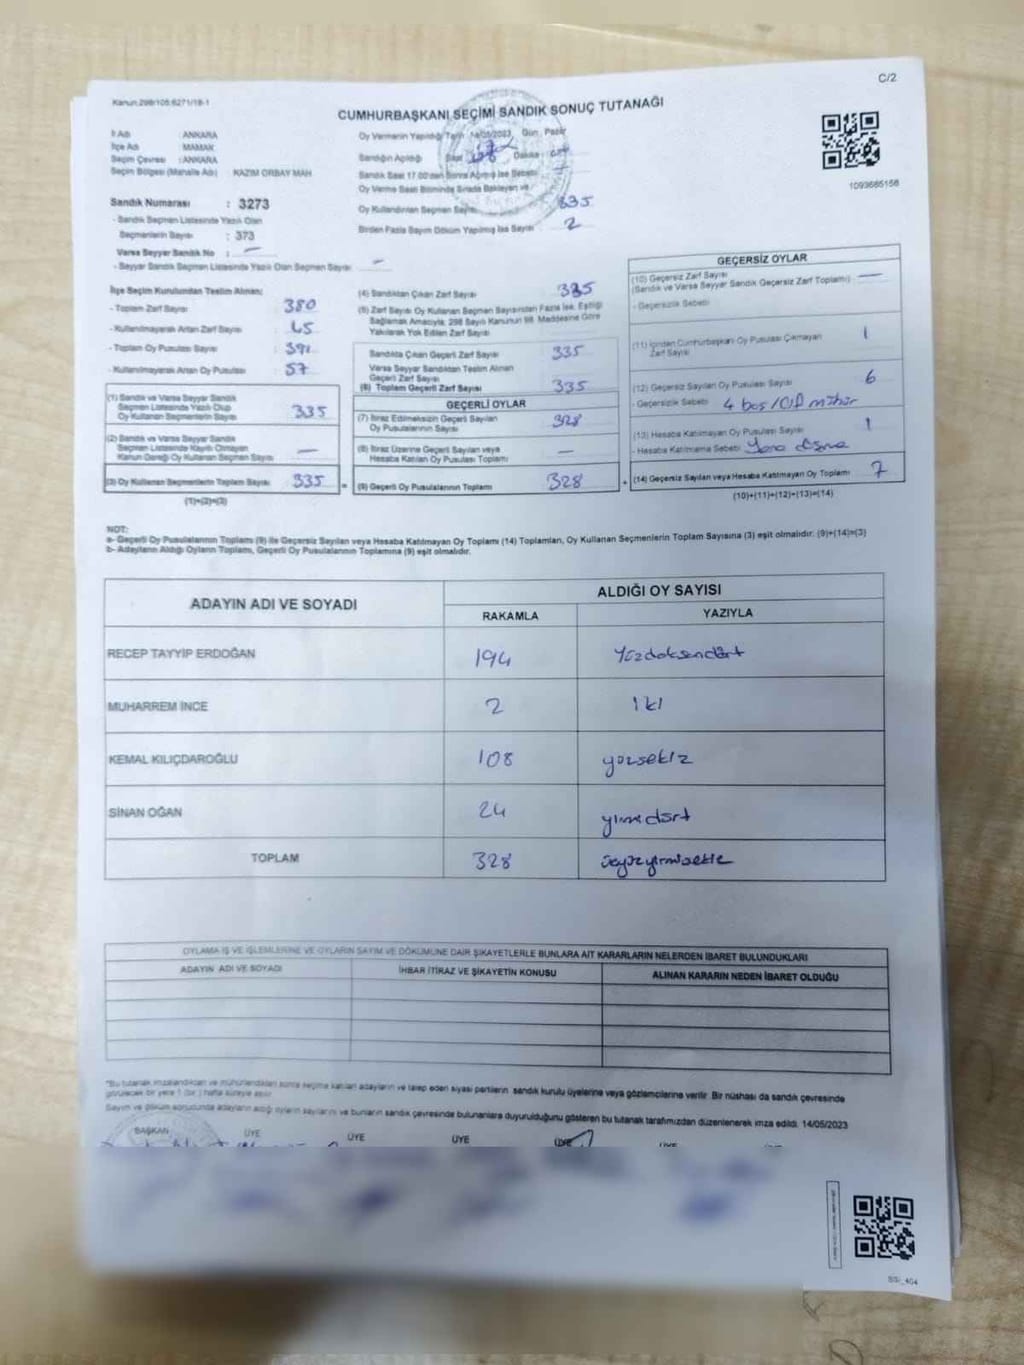 C/2
Kanun:298/105;6271/18-1
CUMHURBAŞKANI SEÇİMİ SANDIK SONUÇ TUTANAĞI
İl Adı : ANKARA
İlçe Adı : MAMAK
Seçim Çevresi : ANKARA
Seçim Bölgesi (Mahalle Adı) KAZIM ORBAY MAH
Sandık Numarası : 3273
- Sandık Seçmen Listesinde Yazılı Olan
Seçmenlerin Sayısı : 373
Varsa Seyyar Sandık No : —
- Seyyar Sandık Seçmen Listesinde Yazılı Olan Seçmen Sayısı : —
Oy Vermenin Yapıldığı Tarih 14/05/2023 Gün: Pazar
Sandığın Açıldığı Saat Dakika
Sandık Saat 17.00'den Sonra Açılmış İse Sebebi
Oy Verme Saati Bitiminde Sırada Bekleyen ve
Oy Kullandırılan Seçmen Sayısı 335
Birden Fazla Sayım Döküm Yapılmış İse Sayısı 2
1093685156
İlçe Seçim Kurulundan Teslim Alınan;
- Toplam Zarf Sayısı : 380
- Kullanılmayarak Artan Zarf Sayısı : 45
- Toplam Oy Pusulası Sayısı : 391
- Kullanılmayarak Artan Oy Pusulası : 57
(1) Sandık ve Varsa Seyyar Sandık
Seçmen Listesinde Yazılı Olup
Oy Kullanan Seçmenlerin Sayısı 335
(2) Sandık ve Varsa Seyyar Sandık
Seçmen Listesinde Kayıtlı Olmayan
Kanun Gereği Oy Kullanan Seçmen Sayısı —
(3) Oy Kullanan Seçmenlerin Toplam Sayısı 335
(1)+(2)=(3)
(4) Sandıktan Çıkan Zarf Sayısı 335
(5) Zarf Sayısı Oy Kullanan Seçmen Sayısından Fazla İse, Eşitliği
Sağlamak Amacıyla; 298 Sayılı Kanunun 98. Maddesine Göre
Yakılarak Yok Edilen Zarf Sayısı
Sandıkta Çıkan Geçerli Zarf Sayısı 335
Varsa Seyyar Sandıktan Teslim Alınan
Geçerli Zarf Sayısı
(6) Toplam Geçerli Zarf Sayısı 335
GEÇERLİ OYLAR
(7) İtiraz Edilmeksizin Geçerli Sayılan
Oy Pusulalarının Sayısı 328
(8) İtiraz Üzerine Geçerli Sayılan veya
Hesaba Katılan Oy Pusulası Toplamı —
= (9) Geçerli Oy Pusulalarının Toplamı 328
GEÇERSİZ OYLAR
(10) Geçersiz Zarf Sayısı —
(Sandık ve Varsa Seyyar Sandık Geçersiz Zarf Toplamı)
- Geçersizlik Sebebi
(11) İçinden Cumhurbaşkanı Oy Pusulası Çıkmayan
Zarf Sayısı 1
(12) Geçersiz Sayılan Oy Pusulası Sayısı 6
- Geçersizlik Sebebi 4 boş
(13) Hesaba Katılmayan Oy Pusulası Sayısı 1
- Hesaba Katılmama Sebebi
+ (14) Geçersiz Sayılan veya Hesaba Katılmayan Oy Toplamı 7
(10)+(11)+(12)+(13)=(14)
NOT:
a- Geçerli Oy Pusulalarının Toplamı (9) ile Geçersiz Sayılan veya Hesaba Katılmayan Oy Toplamı (14) Toplamları, Oy Kullanan Seçmenlerin Toplam Sayısına (3) eşit olmalıdır. (9)+(14)=(3)
b- Adayların Aldığı Oyların Toplamı, Geçerli Oy Pusulalarının Toplamına (9) eşit olmalıdır.
ADAYIN ADI VE SOYADI
ALDIĞI OY SAYISI
RAKAMLA YAZIYLA
RECEP TAYYİP ERDOĞAN 194 Yüzdoksandört
MUHARREM İNCE 2 iki
KEMAL KILIÇDAROĞLU 108 yüzsekiz
SİNAN OĞAN 24 yirmidört
TOPLAM 328 üçyüzyirmisekiz
OYLAMA İŞ VE İŞLEMLERİNE VE OYLARIN SAYIM VE DÖKÜMÜNE DAİR ŞİKAYETLERLE BUNLARA AİT KARARLARIN NELERDEN İBARET BULUNDUKLARI
ADAYIN ADI VE SOYADI İHBAR İTİRAZ VE ŞİKAYETİN KONUSU ALINAN KARARIN NEDEN İBARET OLDUĞU
"Bu tutanak imzalandıktan ve mühürlendikten sonra seçime katılan adayların ve talep eden siyasi partilerin sandık kurulu üyelerine veya gözlemcilerine verilir. Bir nüshası da sandık çevresinde
görülecek bir yere 1 (bir ) hafta süreyle asılır
Sayım ve döküm sonucunda adayların aldığı oyların sayılarını ve bunların sandık çevresinde bulunanlara duyurulduğunu gösteren bu tutanak tarafımızdan düzenlenerek imza edildi. 14/05/2023
BAŞKAN ÜYE ÜYE ÜYE ÜYE ÜYE
SSİ_404